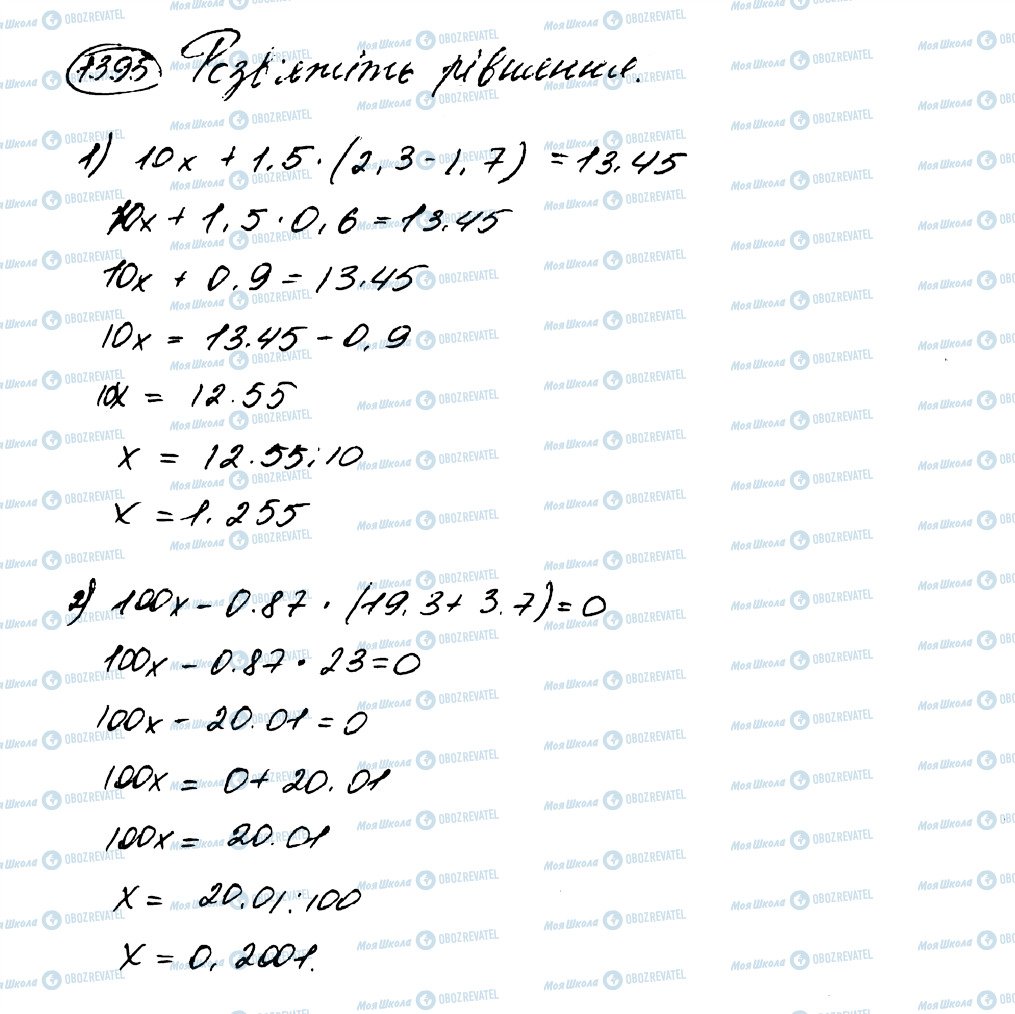 1395 Розв'яжіть рівняння.
1) 10x + 1.5 · (2,3 - 1,7) = 13.45
10x + 1,5 · 0,6 = 13.45
10x + 0.9 = 13.45
10x = 13.45 - 0,9
10x = 12.55
x = 12.55:10
x = 1.255
2) 100x - 0.87 · (19.3 + 3.7) = 0
100x - 0.87 · 23 = 0
100x - 20.01 = 0
100x = 0 + 20.01
100x = 20.01
x = 20.01:100
x = 0,2001.
Моя Школа OBOZREVATEL